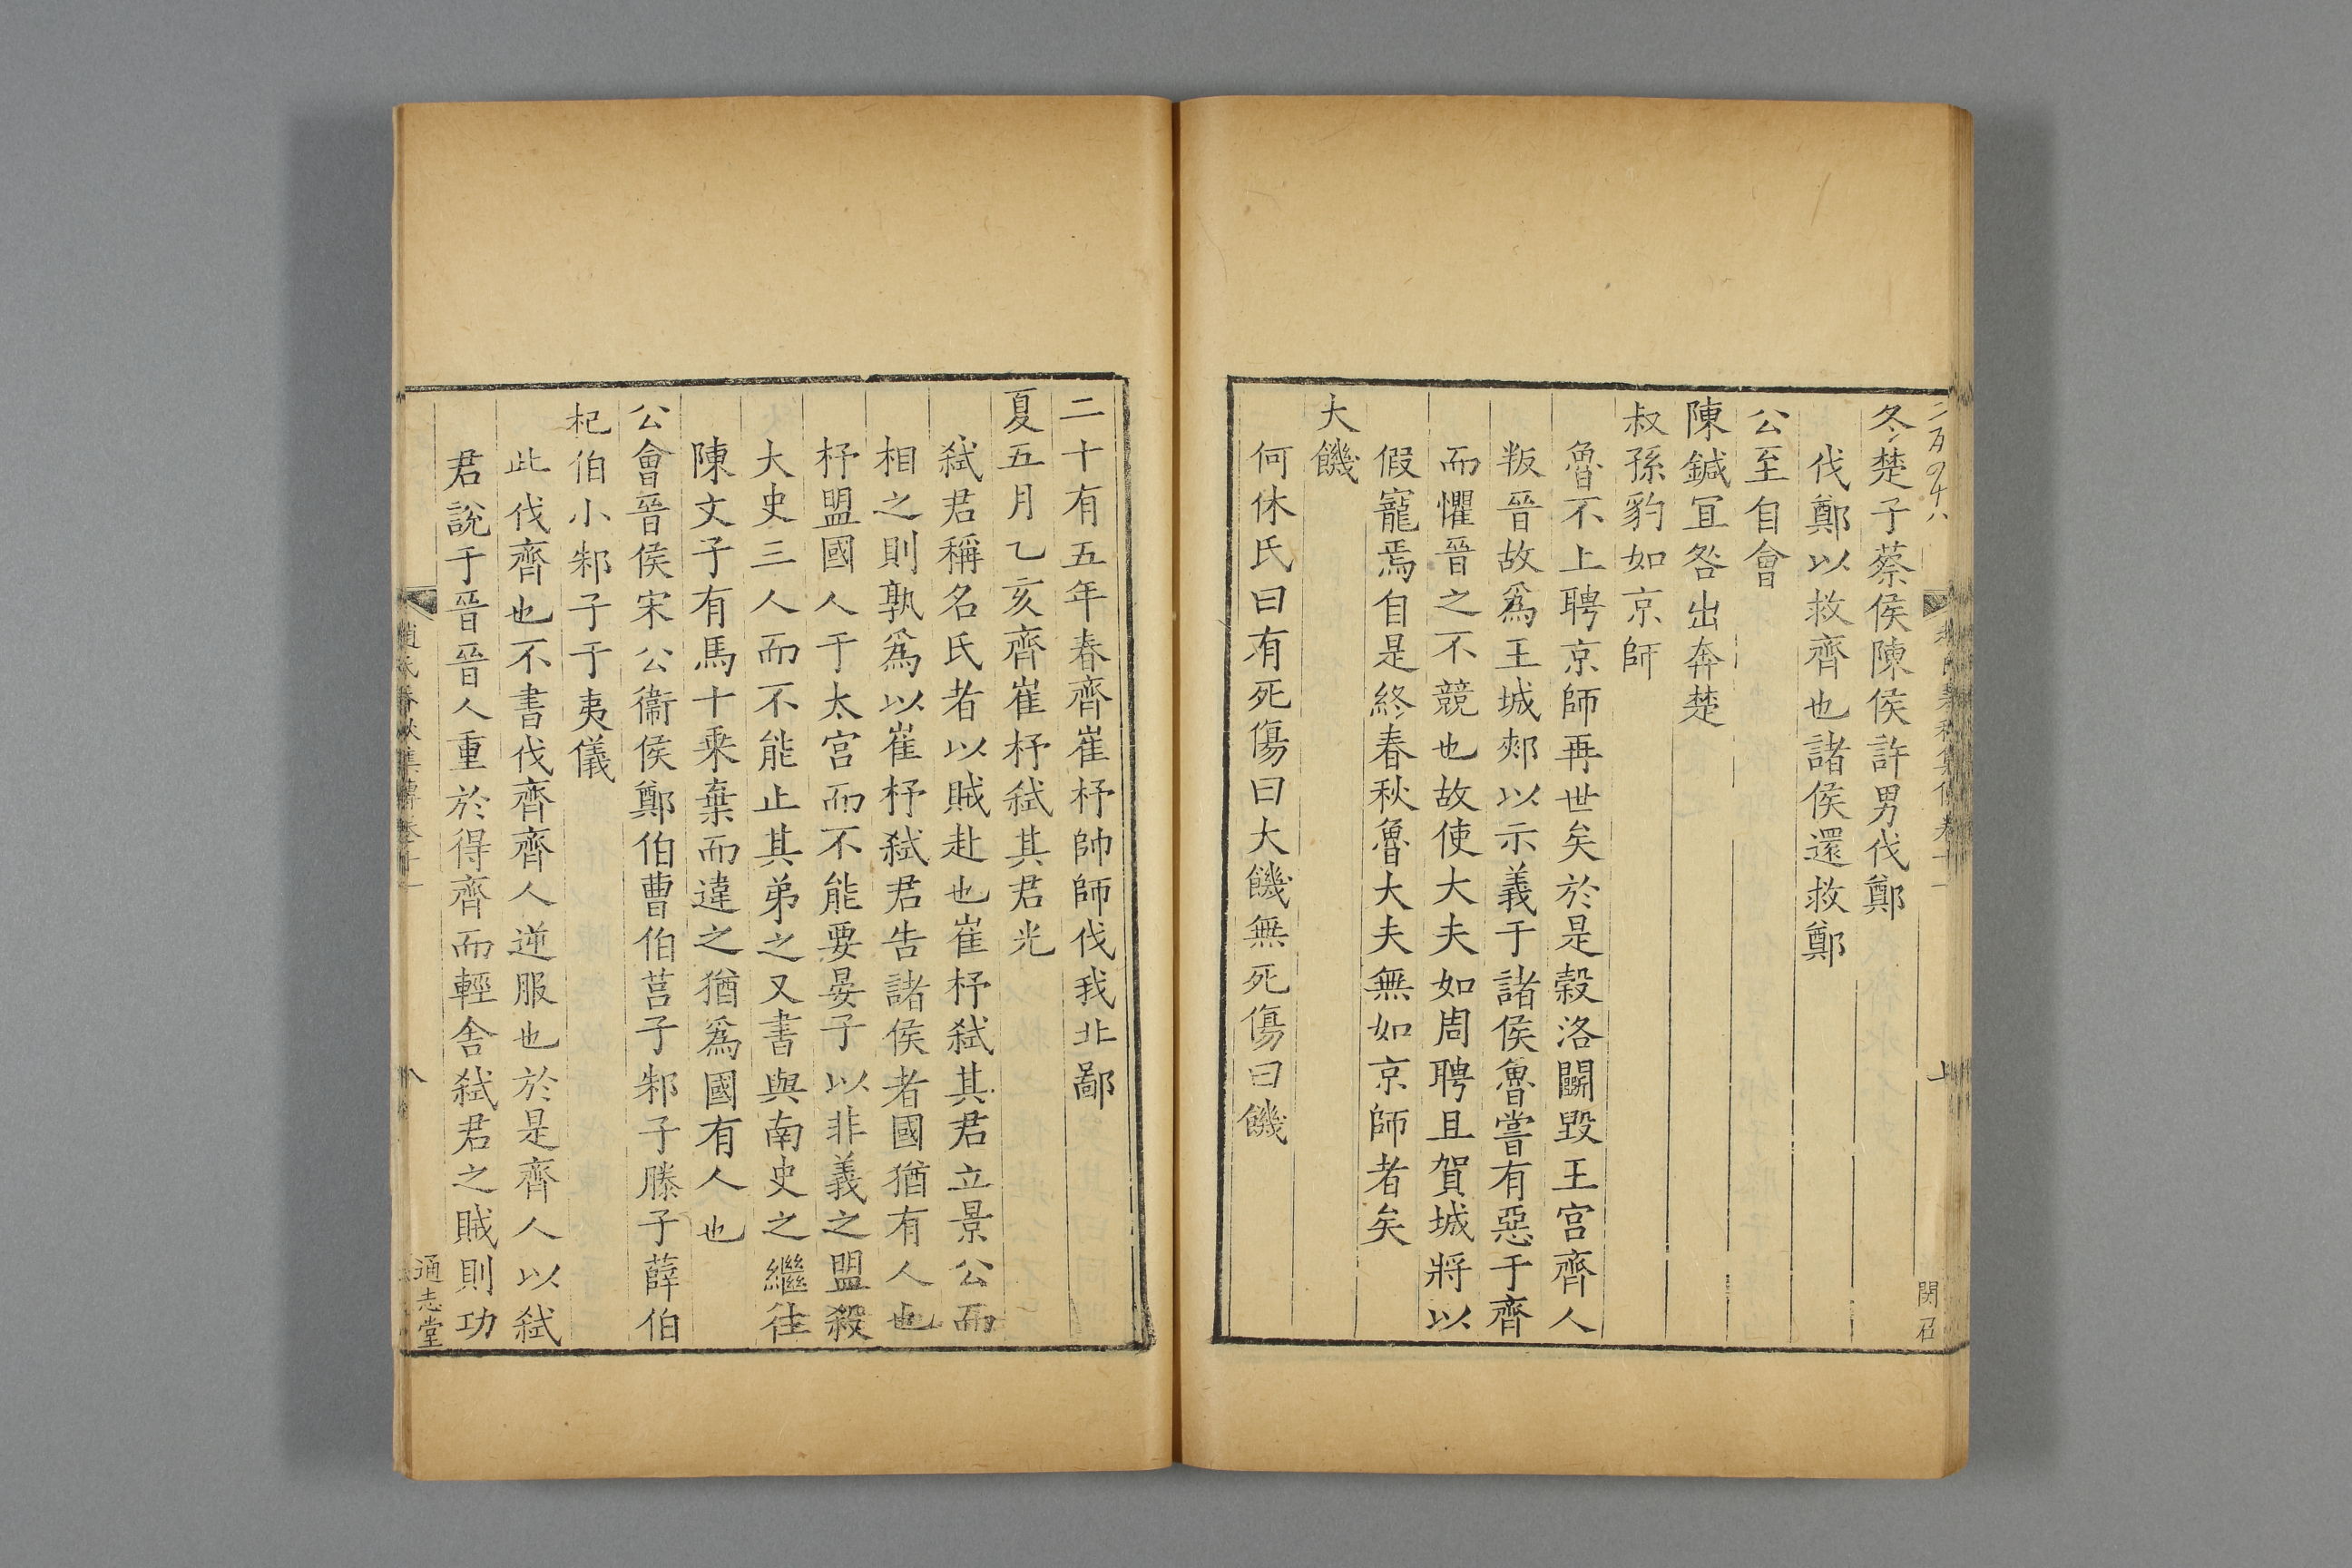 冬楚子蔡侯陳侯許男伐鄭
伐鄭以救齊也諸侯還救鄭
公至自會
陳鍼宜咎出奔楚
叔孫豹如京師
魯不上聘京師再世矣於是榖洛鬭毀王宮齊人
叛晉故爲王城郟以示義于諸侯魯嘗有惡于齊
而懼晉之不競也故使大夫如周聘且賀城將以
假寵焉自是終春秋魯大夫無如京師者矣
大饑
何休氏曰有死傷曰大饑無死傷曰饑
閔召
二十有五年春齊崔杼帥師伐我北鄙
夏五月乙亥齊崔杼弑其君光
弑君稱名氏者以賊赴也崔杼弑其君立景公而
相之則孰爲以崔杼弑君告諸侯者國猶有人也
杼盟國人于太宮而不能要晏子以非義之盟殺
大史三人而不能止其弟之又書與南史之繼往
陳文子有馬十乘棄而違之猶爲國有人也
公會晉侯宋公衞侯鄭伯曹伯莒子邾子滕子薛伯
杞伯小邾子于夷儀
此伐齊也不書伐齊齊人逆服也於是齊人以弑
君說于晉晉人重於得齊而輕舍弑君之賊則功
趙氏春秋集傳卷十一
八
通志堂